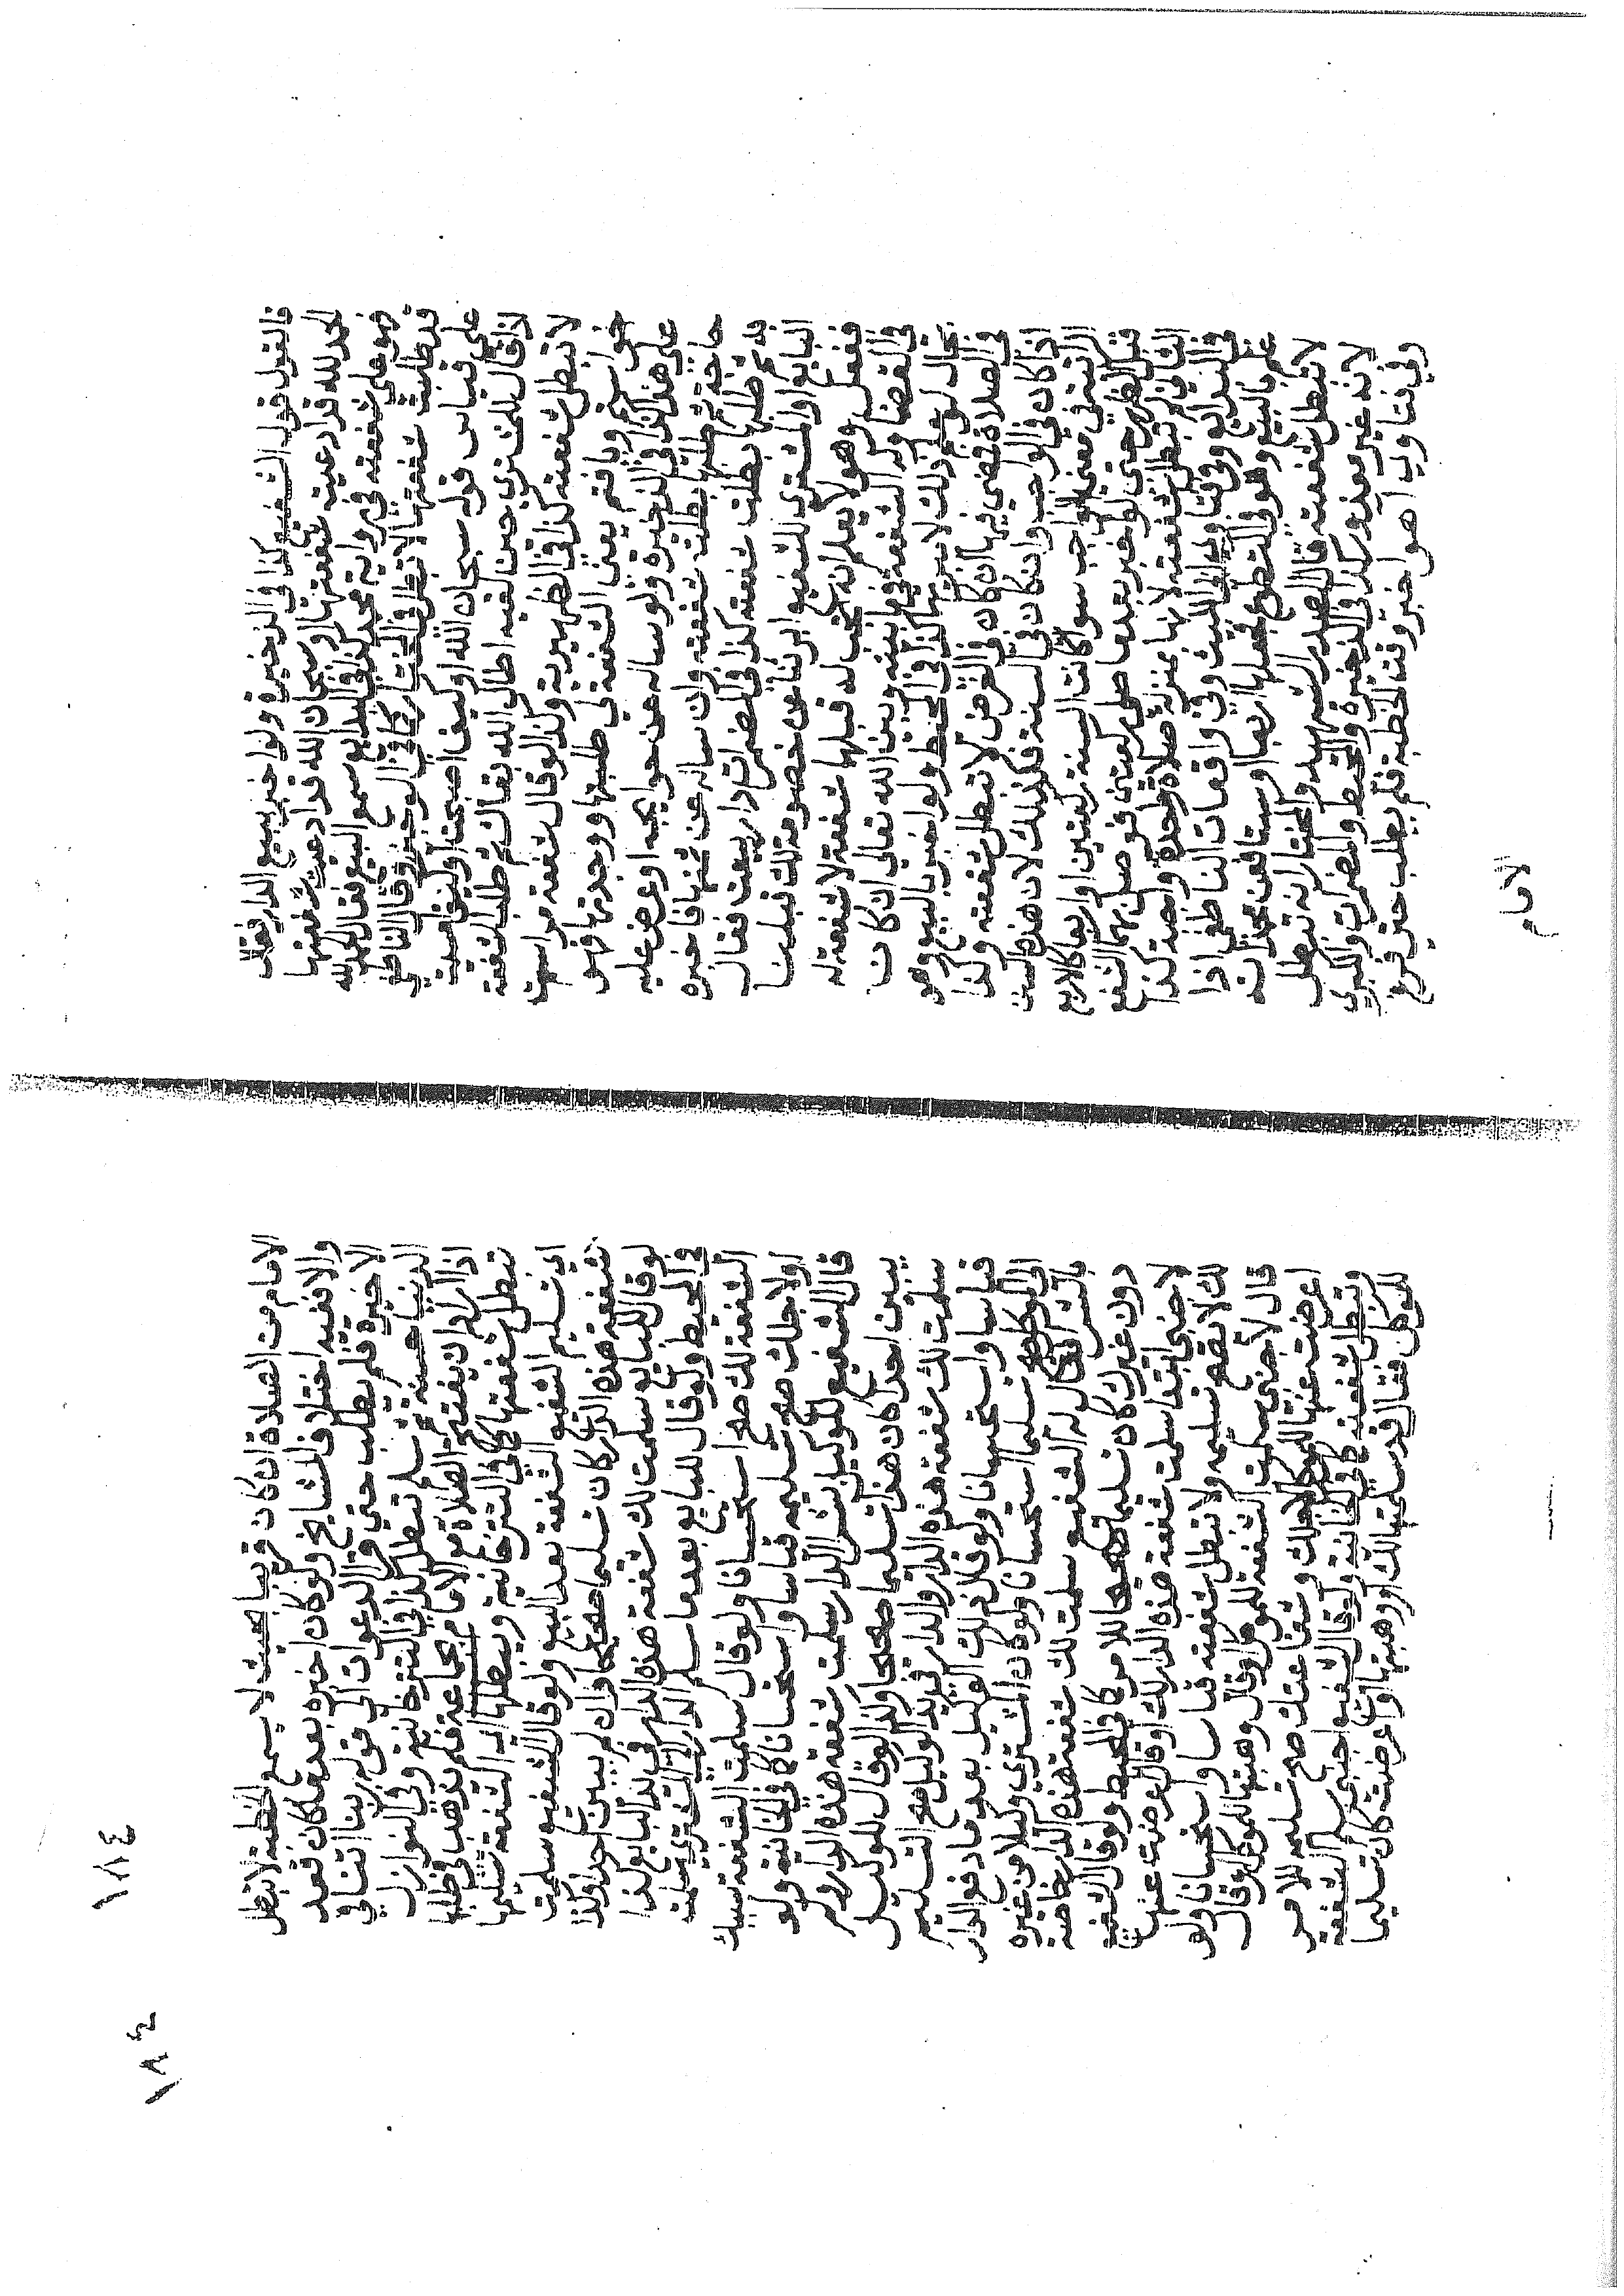 فالقول قول الشفيع كذا في الذخيرة ولو اخبر ببيع الدار فقال
الحمد لله قد ادعيت شفعتها او سبحان الله قد ادعيت شفعتها
فهو على شفعته في رواية محمد كذا في البدايع سمع البيع فقال الحمد لله
قد طلبت شفعتها لا تبطل في المختار كما في الوجيز وقال الناطفي
على قياس قوله سبحان الله او كيف اصبحت او كيف امسيت
اذا قال للمشترى حين لقيه اطال الله بقاك ثم طلب الشفعة
لا تبطل شفعته كذا في الظهيرية وكذا لو قال شفعه مراسهت
خواستم ويافتم يعني الشفعة لي طلبتها ووجدتها فهو
على هذا كذا في الذخيرة ولو ساله عن حوايجه او عرض عليه
حاجة ثم طلبها بطلت شفعته وان ساله عن ثمنها فاخبره
به ثم طلبها بطلت شفعته كذا في المضمرات دار بيعت فقال
البايع او المشترى للشفيع ابرئنا عن خصومتك قبلنا
ففعل وهو لا يعلم انه تجب له قبلها شفعة لا شفعة له
في القضا وله الشفعة فيما بينه وبين الله تعالى ان كان
بحال لو علم ذلك لا يبرئها كذا في المحيط ولو اخبر بالبيع وهو
في الصلاة فمضي فيها ان كان في الفرض لا تبطل شفعته وكذا
اذا كان في الواجب وان كان في السنة فكذلك لان هذه السنن
الراتبة في معنى الواجب سوا كانت السنة ركعتين او اربعا كالاربع
قبل الظهر حتى لو اخبر بعد ما صلى ركعتين فوصل بهما الشفع
الثاني لم تبطل شفعته لانها بمنزلة صلاة واحدة واجبة كذا
في البدايع وفي فتاوى ابي الليث وفي واقعات الناطفي اذا
علم بالبيع وهو في التطوع فجعلها اربعا او ستا فعن محمد انه
لا تبطل شفعته قال الصدر الشهيد والمختار انه تبطل
لانه غير معذور كذا في الذخيرة والمحيط والمضمرات والكبرى
وفي فتاوى آهو اخبر وقت الخطبة فلم يطلب حتى فرغ
الامام
الامام من الصلاة ان كان قريبا بحيث لا يسمع الخطبة لا تبطل
والا ففيه اختلاف المشايخ ولو كان اخبره بعد ما كان قعد
الاخيرة فلم يطلب حتى قرا الدعوات الى قوله ربنا اتنا في
الدنيا حسنة ثم سلم تبطل كذا في التترخانية وفي النوازل
اذا اراد ان يفتتح الصلاة مع الامام بجماعة فلم يذهب في طلبها
تبطل شفعتها كما في التترخانية ويبطلها اي الشفعة تسليمها
اي تسليم الشفيع الشفعة بعد البيع ولو قال الشفيع سلمت
شفعة هذه الدار كان تسليما صحيحا وان لم يبين احدا وكذا
لو قال للبايع سلمت لك شفعة هذه الدار في يد البايع كذا
في المحيط ولو قال للبايع بعد ما سلم الدار الى المشترى سلمت
الشفعة لك صح استحسانا ولو قال سلمت الشفعة بسببك
او لاجلك صح تسليمه قياسا واستحسانا كما في الخانية ولو
قال الشفيع للوكيل بشرا الدار سلمت شفعة هذه الدار ولم
يبين احدا كان هذا تسليما صحيحا وكذا لو قال للوكيل
سلمت لك شفعة هذه الدار والدار في يد الوكيل صح التسليم
قياسا واستحسانا ولو قال ذلك للوكيل بعد ما دفع الدار
الى الموكل صح تسليما استحسانا ولو كان المشتري وكيلا من غيره
بالشرا فقال له الشفيع سلمت لك شفعة هذه الدار خاصة
دون غيرك كان تسليما صحيحا للامر كما في المحيط ولو قال الشفيع
لاجنبي ابتدا سلمت شفعة هذه الدار لك او قال اعرضت عنها
لك لا يصح تسليمه ولا تبطل شفعته قياسا واستحسانا ولو
قال لاجنبي سلمت الشفعة للموكل او قال وهبتها للموكل او قال
اعرضت عنها للموكل لاجلك وشفاعتك صح تسليمه للامر
وتبطل شفعته كما في الخانية ولو قال للشفيع اجنبي سلم الشفعة
للموكل فقال قد سلمتها لك او وهبتها او اعرضت كان تسليما
١٨٤
١٨٤